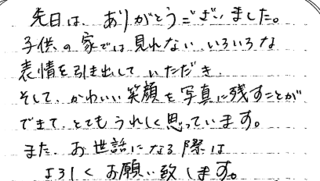 先日は、ありがとうございました。
子供の家では見れない いろいろな
表情を引き出していただき
そして、かわいい笑顔を写真に残すことが
できて、とてもうれしく思っています。
また、お世話になる際は
よろしくお願い致します。